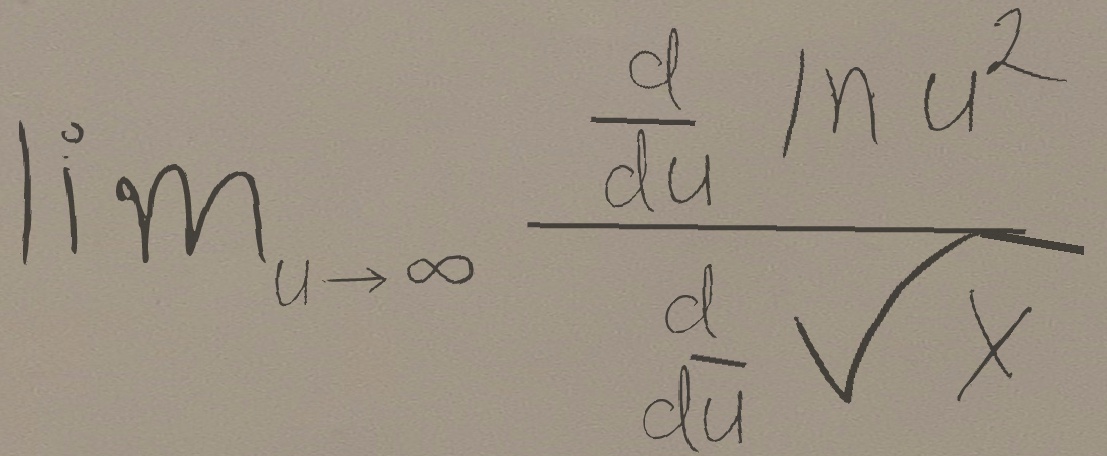 lim_{u \to \infty} \frac{\frac{d}{du} \ln u^2}{\frac{d}{du} \sqrt{x}}